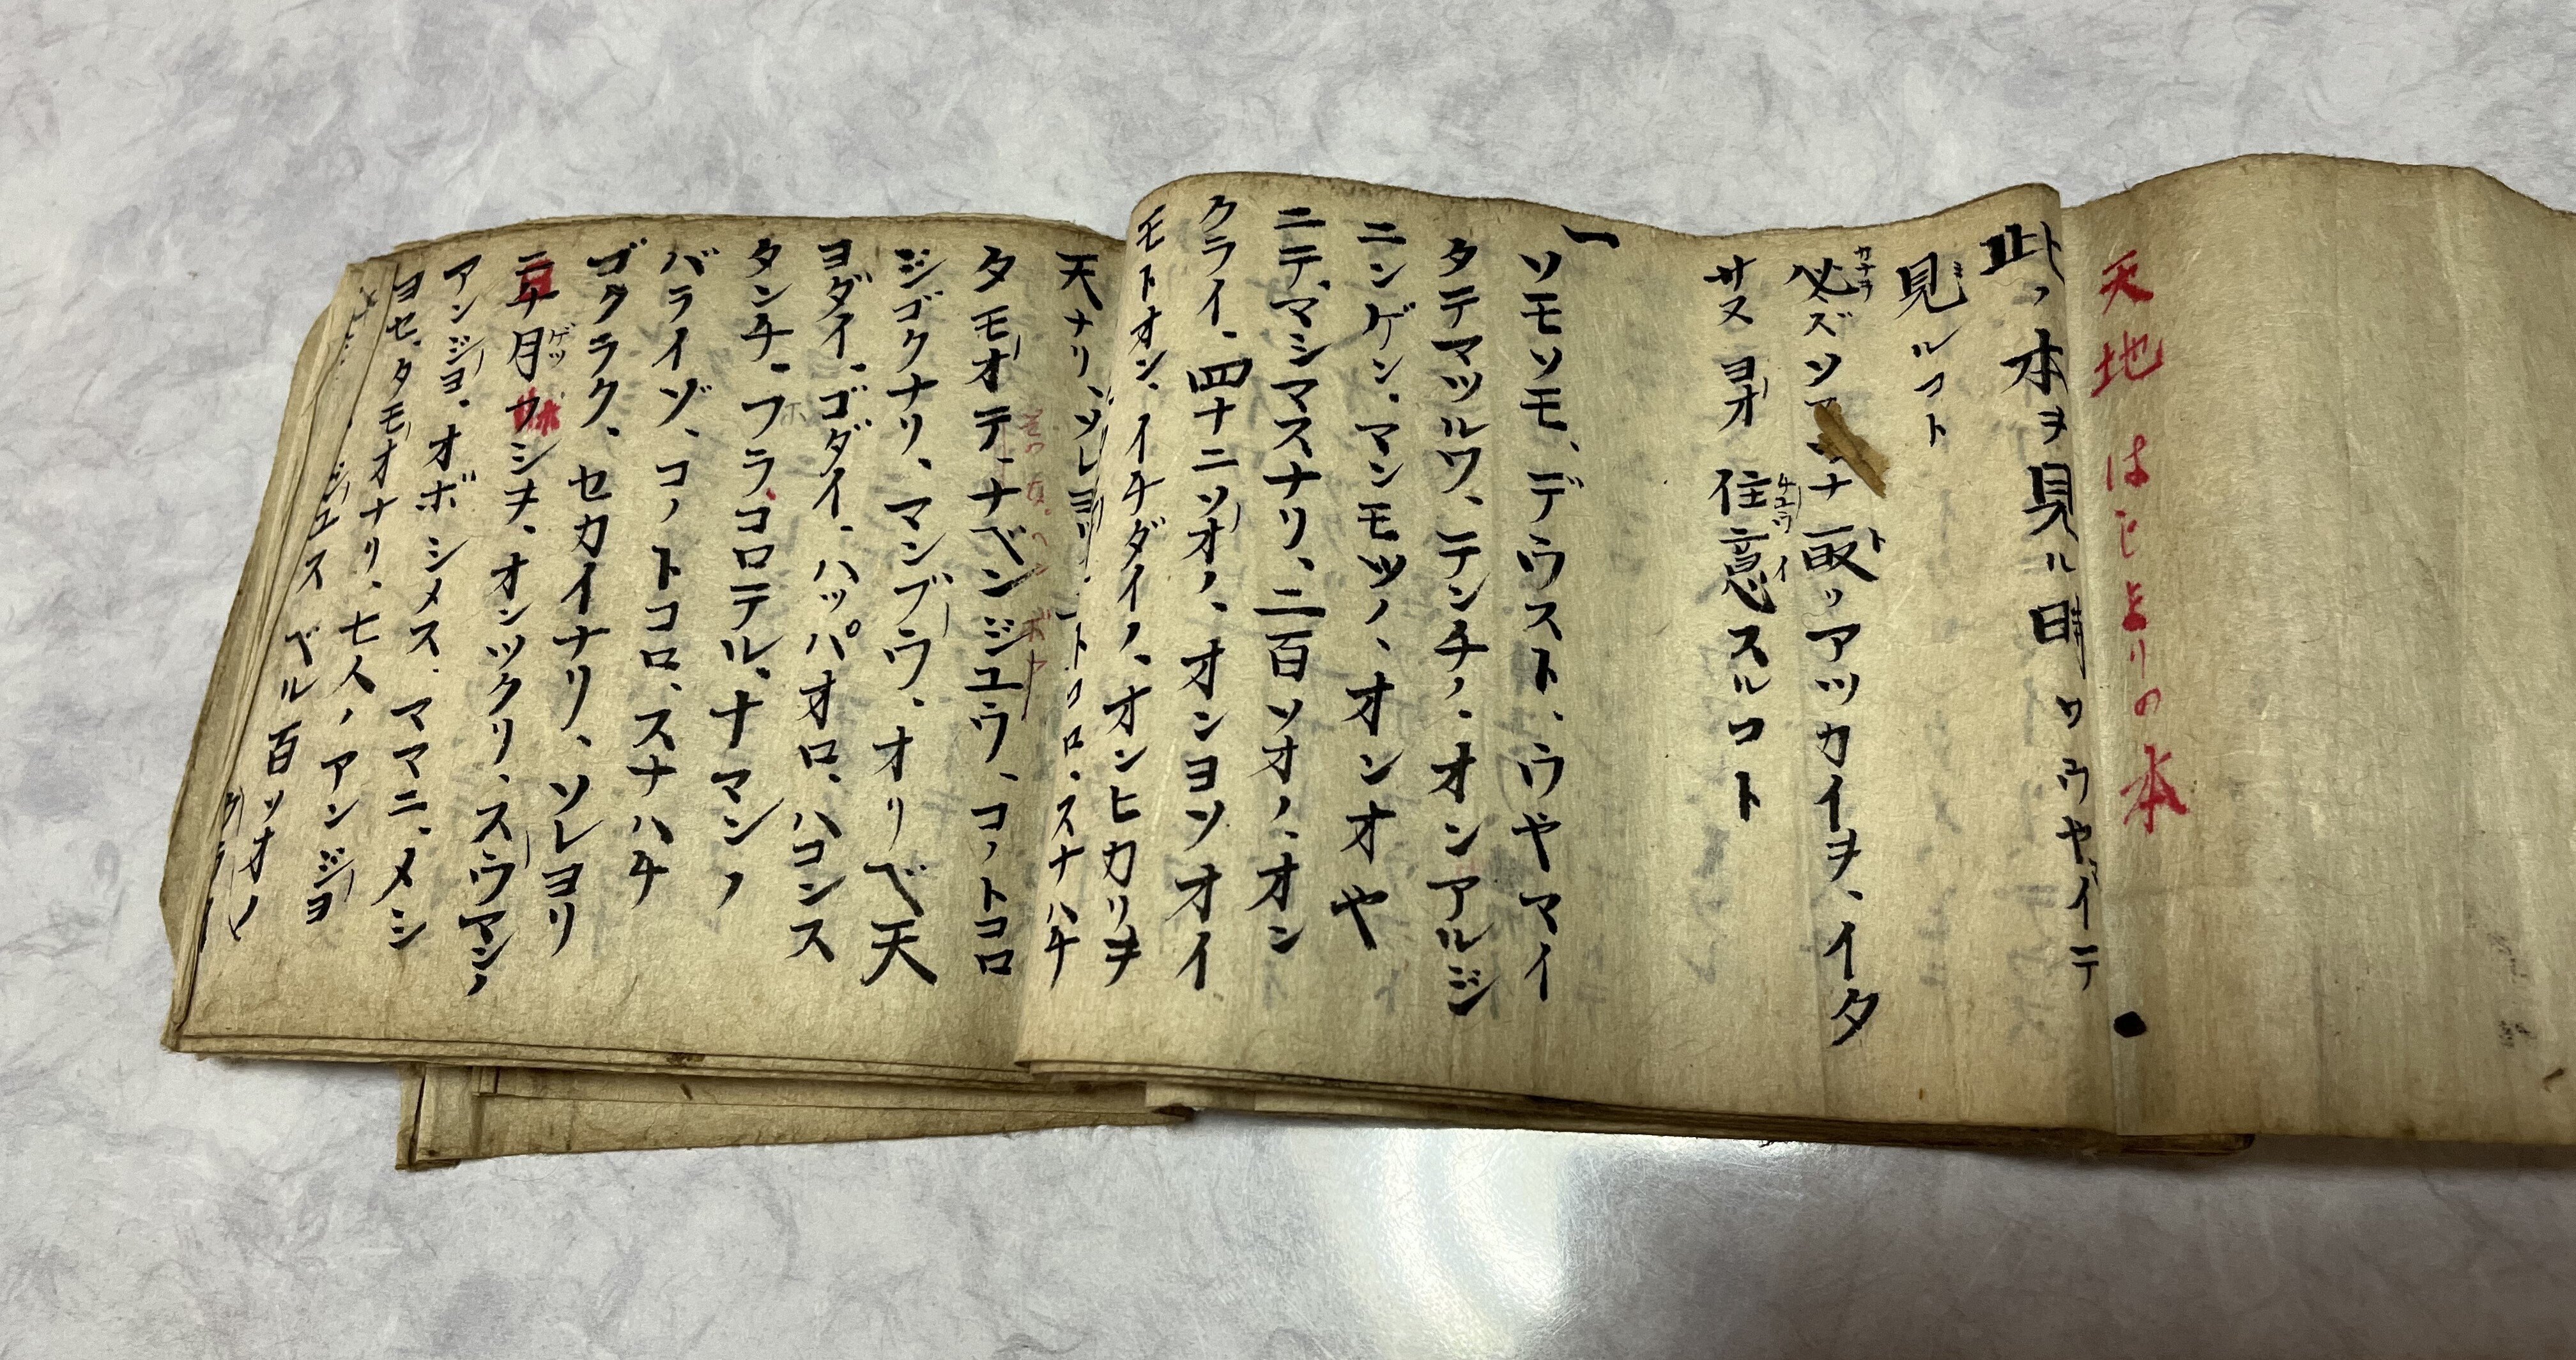 天地はじまりの本
此ノ本ヲ見ル時ワウヤマイテ
見ルコト
必ズソマツナ取リアツカイヲ、イタ
サヌヨオ住意スルコト
一
ソモソモ、デウスト、ウヤマイ
タテマツルワ、テンチノ、オンアルジ
ニンゲン、マンモツノ、オンオヤ
ニテ、マシマスナリ、二百ソオノ、オン
クライ、四十ニソオノ、オンヨソオイ
モトオン、イチダイノ、オンヒカリヲ
天ナリ、ソレヨリ トコロ、スナハチ
タモオテ、ナベンジユウ、コノトコロ
ジゴクナリ、マンブウ、オリベ天
ヨダイ、ゴダイ、ハッパオロ、ハコンス
タンチ、フラ、コロテル、ナマンノ
バライゾ、コノトコロ、スナハチ
ゴクラク、セカイナリ、ソレヨリ
月 シヲ、オンツクリ、スウマンノ
アンジヨ、オボシメス、ママニ、メシ
ヨセ、タモオナリ、七人ノアンジヨ
ジユスベル百ソオノ